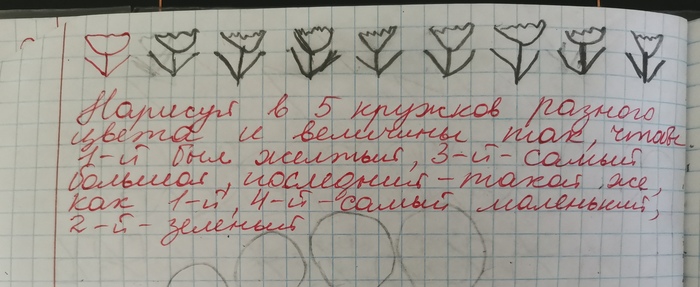 Нарисуй в 5 кружков разного
цвета и величины так, чтобы
1-й был желтый, 3-й-самый
большой, последний-такой же,
как 1-й, 4-й-самый маленький,
2-й-зеленый